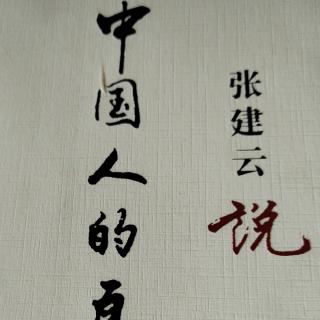 张建云说
中国人的百